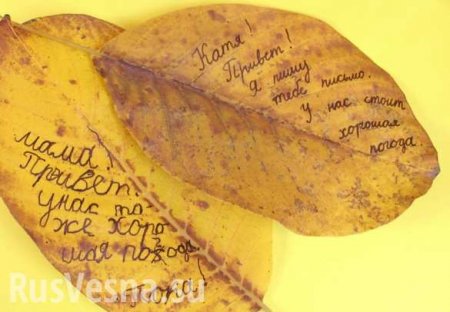 Катя!
Привет!
Я пишу
тебе письмо.
У нас стоит
хорошая
погода
мама!
Привет.
унас то
же хоро
шая погода.
RusVesna.su